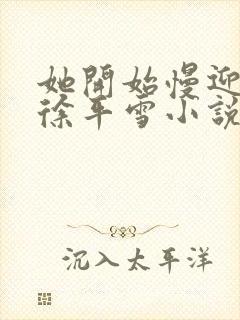 她開始慢迎
徐平雪小說
沉入太平洋